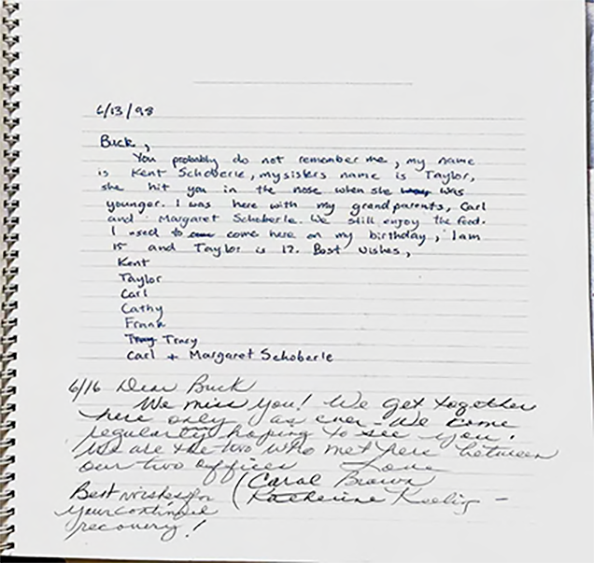 6/13/98
Buck,
You probably do not remember me, my name
is Kent Schoberle, my sisters name is Taylor,
she hit you in the nose when she was
younger. I was here with my grandparents, Carl
and Margaret Schoberle. We still enjoy the food.
I used to come here on my birthday, I am
15 and Taylor is 12. Best wishes,
Kent
Taylor
Carl
Cathy
Frank
Tracy
Carl + Margaret Schoberle
6/16 Dear Buck
We miss you! We get together
here only as ever - We come
regularly hoping to see you!
We are the two who met here between
our two offices Love
(Carol Brown
Katherine Keelig -
Best wishes for
your continued
recovery!